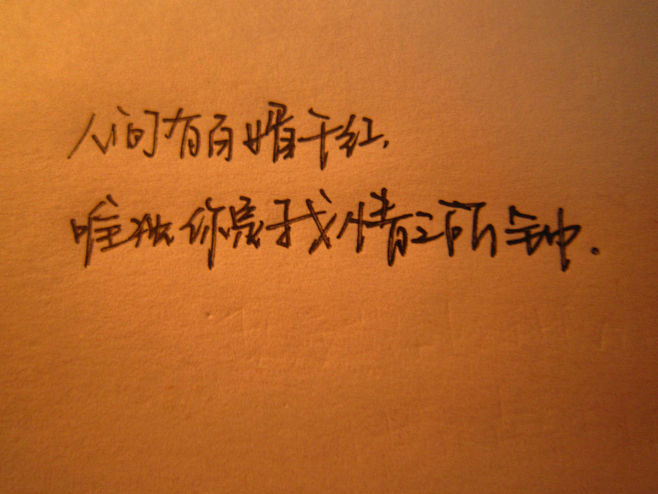 人间有百媚千红，
唯独你是我情之所钟．